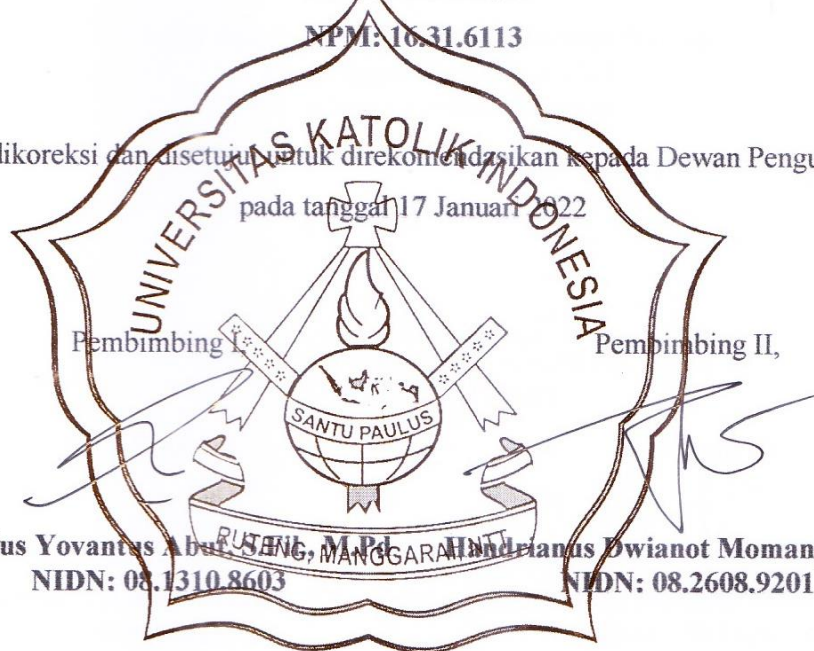 NPM: 16.31.6113
dikoreksi dan disetujui untuk direkomendasikan kepada Dewan Pengu
pada tanggal 17 Januari 2022
UNIVERSITAS KATOLIK INDONESIA
Pembimbing I, Pembimbing II,
SANTU PAULUS
RUTENG, MANGGARAI NTT
us Yovantus Abut, S.Fil., M.Pd Handrianus Dwianot Moman
NIDN: 08.1310.8603 NIDN: 08.2608.9201